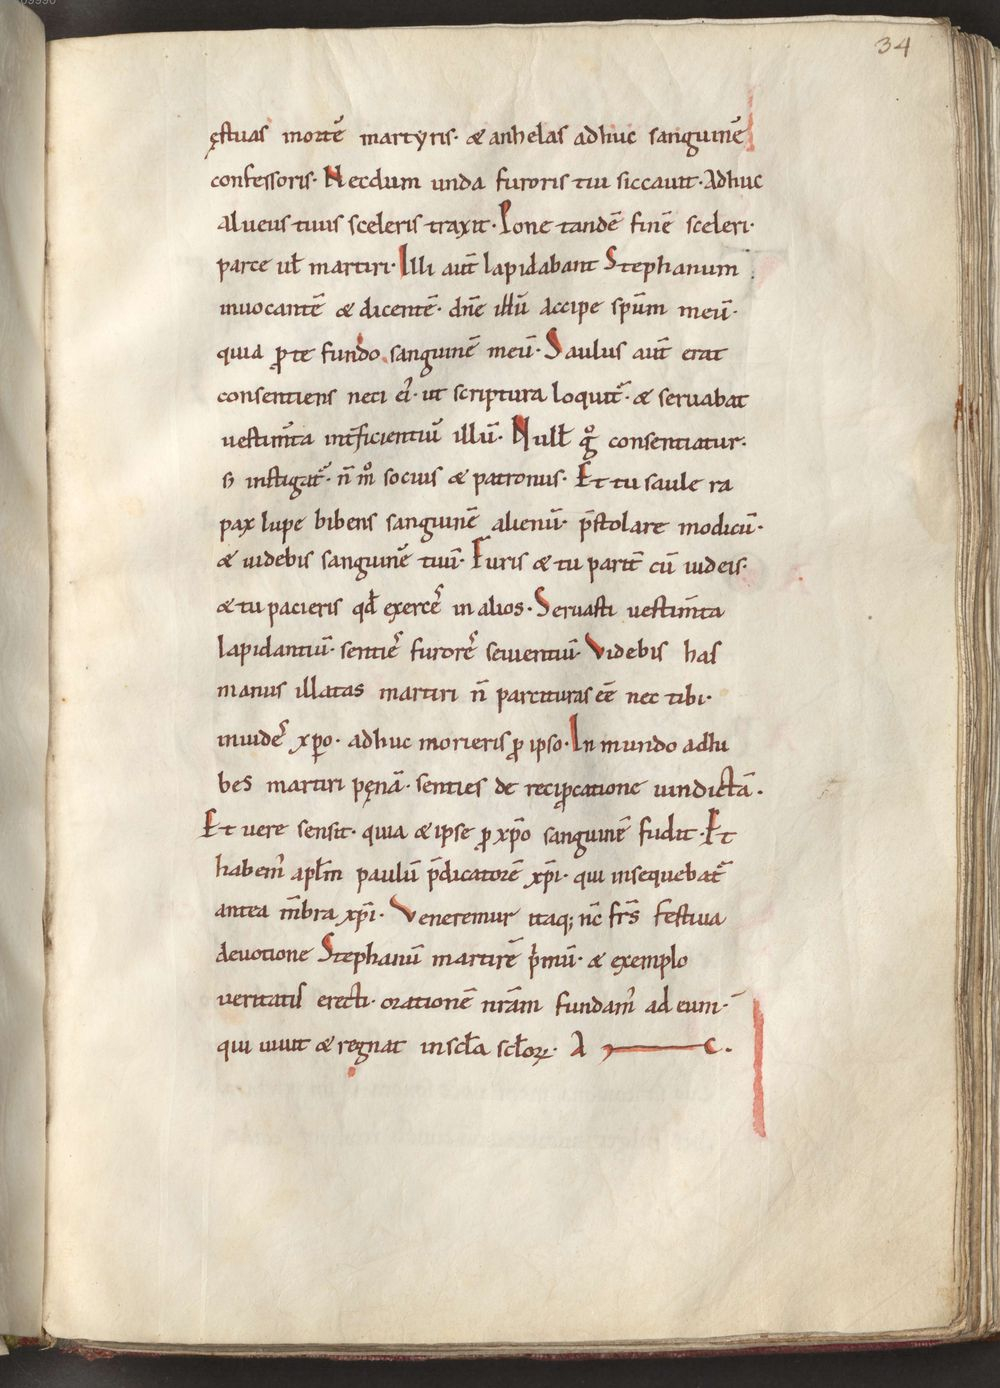 34
ęstuas mortē martyris· & anhelas adhuc sanguinē
confessoris· Necdum unda furoris tui siccauit· Adhuc
alueus tuus sceleris traxit· Pone tandē finē sceleri·
parce ul̄ martiri· Illi aūt lapidabant Stephanum
inuocantē & dicentē· dn̄e ih̄u Accipe sp̄um meū·
quia ꝓ te fundo sanguinē meū· Saulus aūt erat
consentiens neci ei᾽· ut scriptura loquit᷑· & seruabat
uestim̄ta int̄ficientiū illū· Null᾽ g° consentiatur·
s; instigat᷑· n̄ m° socius & patronus· Et tu saule ra
pax lupe bibens sanguinē alienū· p̄stolare modicū·
& uidebis sanguinē tuū· Furis & tu parit̄ cū iudeis·
& tu pacieris qd̄ exercē᷑ in alios· Seruasti uestim̄ta
lapidantiū· sentiē᷑ furorē᷑ seuientiū· Videbis has
manus illatas martiri n̄ parcituras eē nec tibi·
inuidē᷑ xp̄o· adhuc morieris ꝓ ipso· In mundo adhi
bes martiri pęnā· senties de reciꝓcatione uindictā·
Et uere sensit· quia & ipse ꝓ xp̄o sanguinē fudit· Et
habem᾽ apl̄m paulū p̄dicatorē xp̄i· qui insequebat᷑
antea m̄bra xp̄i· Veneremur itaq; nc̄ fr̄s festiua
deuotione Stephanū martirē p̄mū· & exemplo
ueritatis erecti· orationē nr̄am fundam᾽ ad eum·
qui uiuit & regnat in scl̄a scl̄oꝝ· A